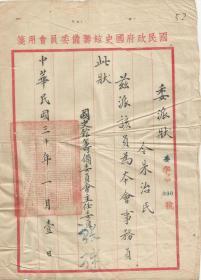 國民政府國史館籌備委員會用箋
委派狀
令朱治民
茲派該員為本會事務員
此狀
國史館籌備委員會主任委員張繼
中華民國三十年一月壹日